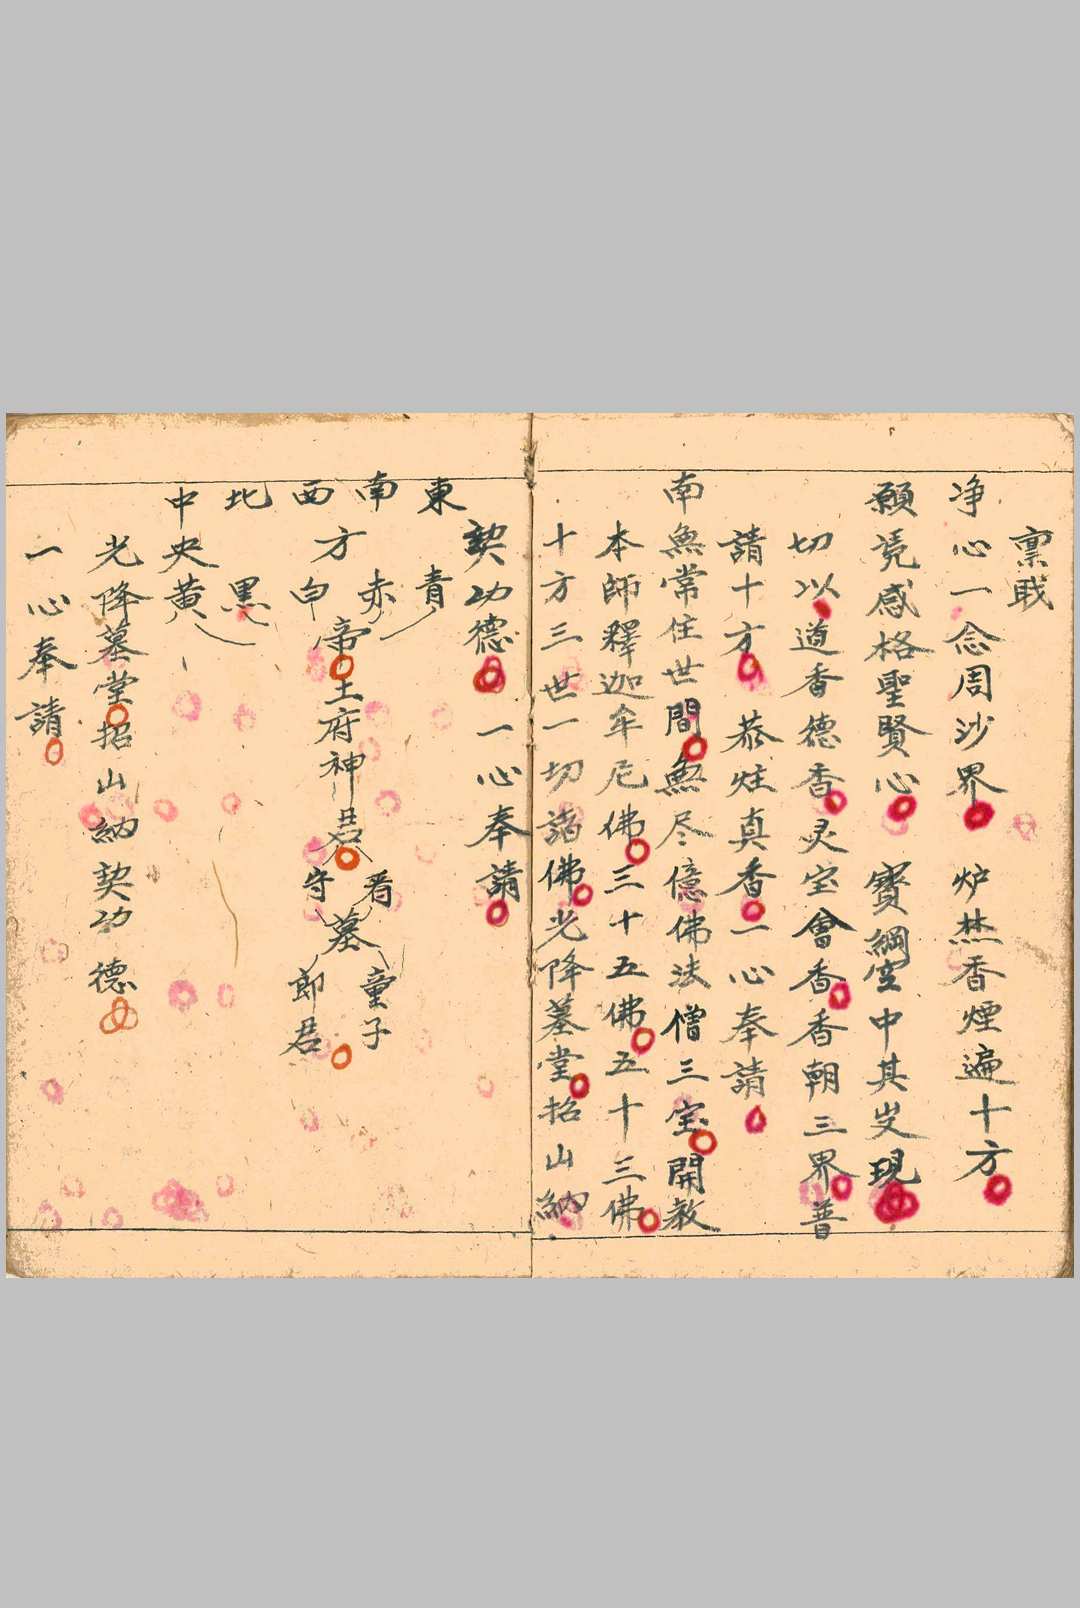 禀戝
净心一念周沙界炉焚香煙遍十方
願凭感格聖賢心寶綱空中其叐現
切以道香德香灵宝會香香朝三界普
請十方恭炷真香一心奉請
南無常住世間無尽億佛法僧三宝開教
本師釋迦牟尼佛三十五佛五十三佛
十方三世一切諸佛光降墓堂招山納
契功德一心奉請
東青
南赤
西方白帝土府神君看守墓童子郎君
北黑
中央黄
光降墓堂招山納契功德
一心奉請